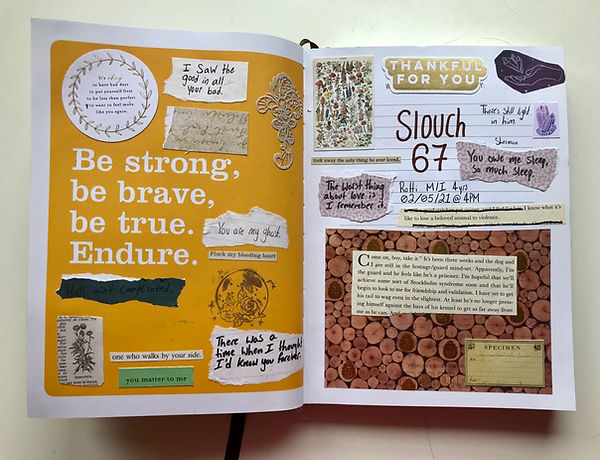 It's okay
to have bad days
to put yourself first
to be less than perfect
to want to feel more
like you again.
I saw the
good in all
your bad.
Be strong,
be brave,
be true.
Endure.
You are my ghost.
Pluck my bleeding heart
Hell, ain't complicated.
There was a
time when I thought
I'd know you forever.
one who walks by your side.
you matter to me
THANKFUL
FOR YOU
Slouch
67
There's still light
in him.
took away the only thing he ever loved.
You owe me sleep,
so much sleep.
The worst thing
about love is
I remember it.
Rotti M/I 4yrs
02/05/21 @ 4PM
I know what it's
like to lose a beloved animal to violence.
Come on, boy, take it." It's been three weeks and the dog and
I are still in the hostage/guard mind-set. Apparently, I'm
the guard and he feels like he's a prisoner. I'm hopeful that we'll
achieve some sort of Stockholm syndrome soon and that he'll
begin to look to me for friendship and validation. I have yet to get
his tail to wag even in the slightest. At least he's no longer press-
ing himself against the bars of his kennel to get as far away from
me as he can. And
SPECIMEN
No.